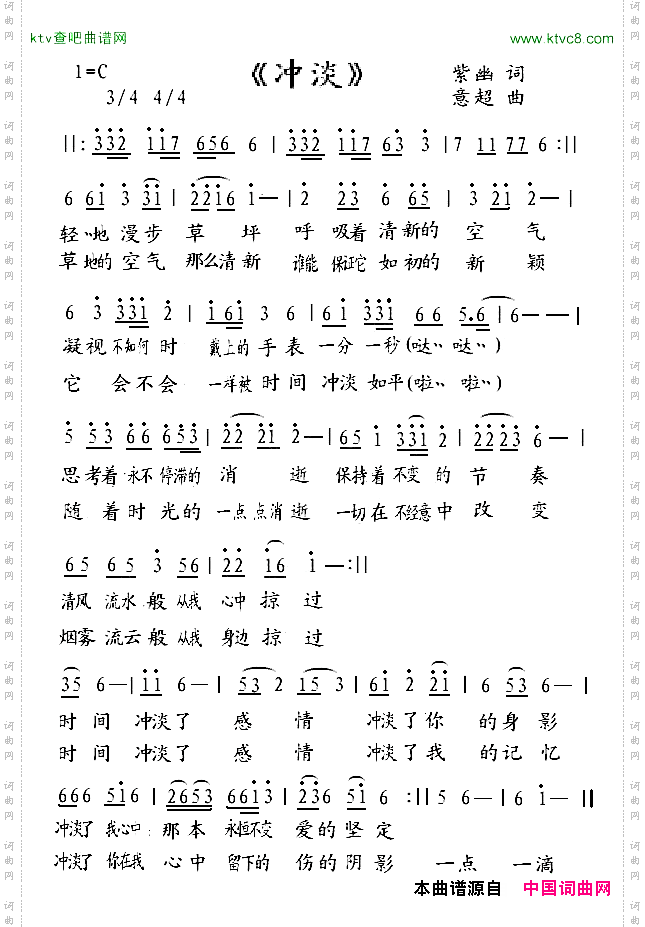 ktv查吧曲谱网
www.ktvc8.com
1=C
《冲淡》
紫幽 词
3/4 4/4
意超 曲
||: 332 117 656 6 | 332 117 63 3 | 7 11 77 6 :||
6 61 3 31 | 2216 1— | 2 23 6 65 | 3 21 2—|
轻地漫步草坪呼吸着清新的空气
草地的空气那么清新谁能保证它如初的新颖
6 3 331 2 | 161 3 6 | 61 331 66 5.6 | 6———|
凝视不知何时戴上的手表一分一秒(哒哒)
它会不会一样被时间冲淡如平(啦啦)
5 53 66 653 | 22 21 2—| 65 1 331 2 | 2223 6—|
思考着永不停滞的消逝保持着不变的节奏
随着时光的一点点消逝一切在不经意中改变
65 65 3 56 | 22 16 1—:||
清风流水般从我心中掠过
烟雾流云般从我身边掠过
35 6—| 11 6—| 53 2 15 3 | 61 2 21 | 6 53 5—|
时间冲淡了感情冲淡了你的身影
时间冲淡了感情冲淡了我的记忆
666 516 | 2653 6613 | 236 51 6 :|| 6———| 6 1—||
冲淡了我心中那本永恒不变爱的坚定
冲淡了你在我心中留下的伤的阴影一点一滴
本曲谱源自 中国词曲网